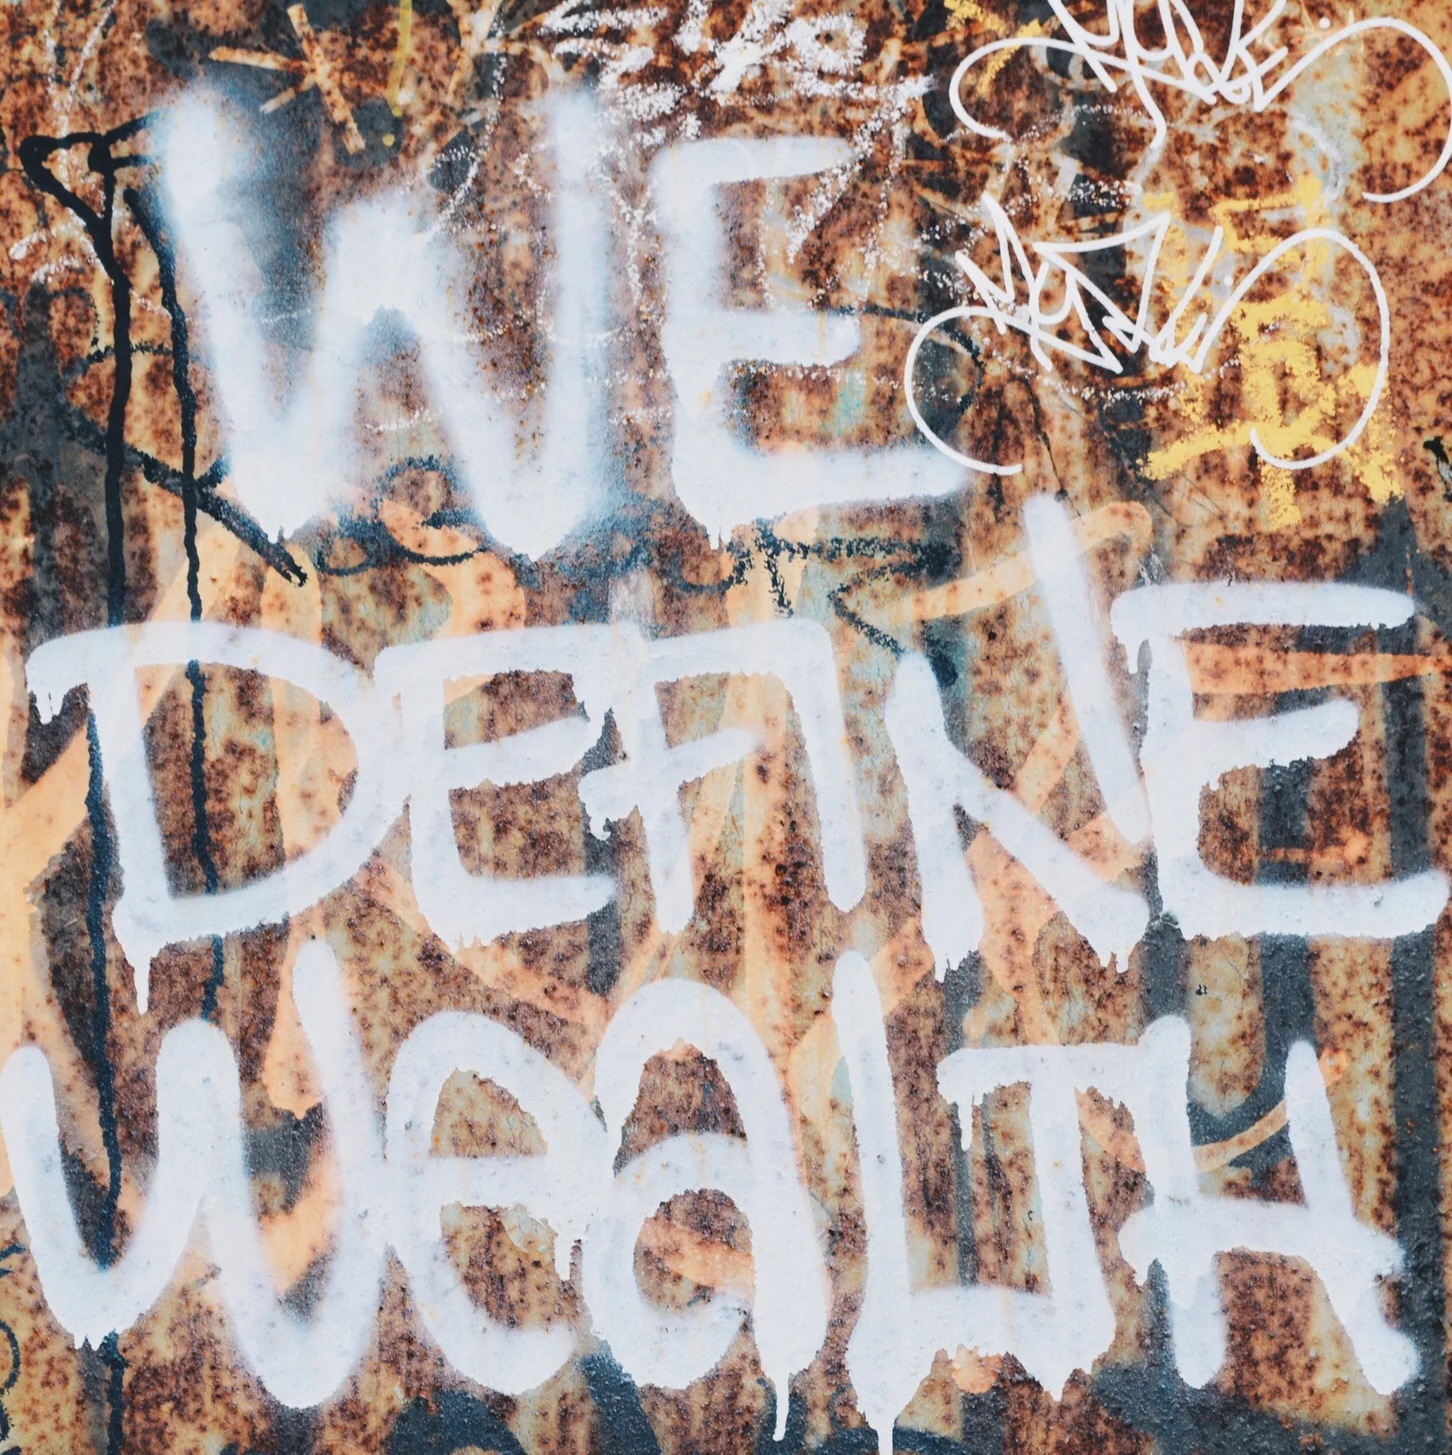 WE
DEFINE
WeaLTH